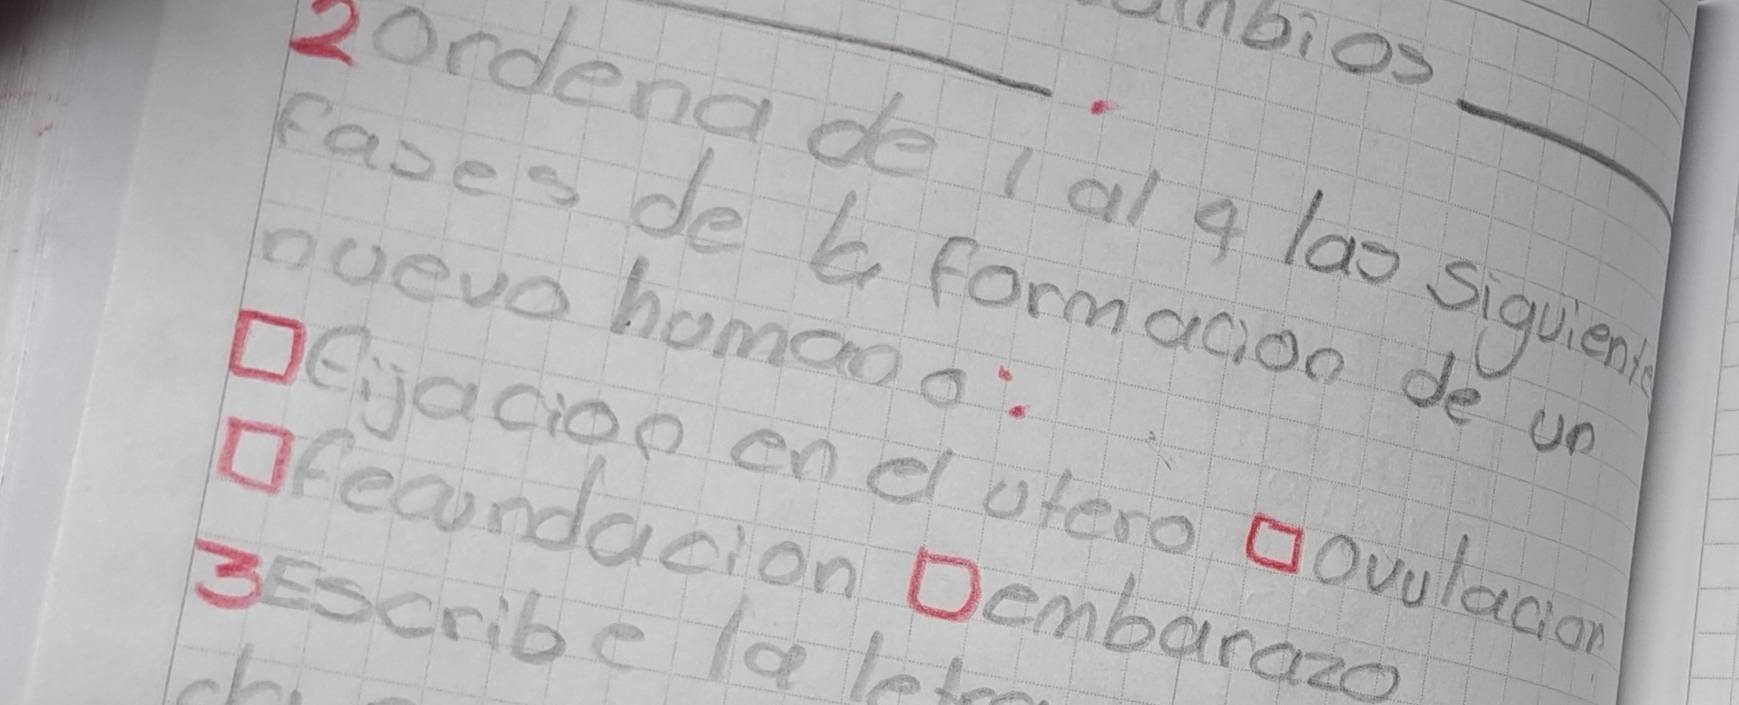 ambios
2 Ordena de 1 al 4 las siguiente
fases de la formacion de un
nuevo humano:
□ fijacion en el utero □ ovulacion
□ fecundacion □ embarazo
3 Escribe la letra